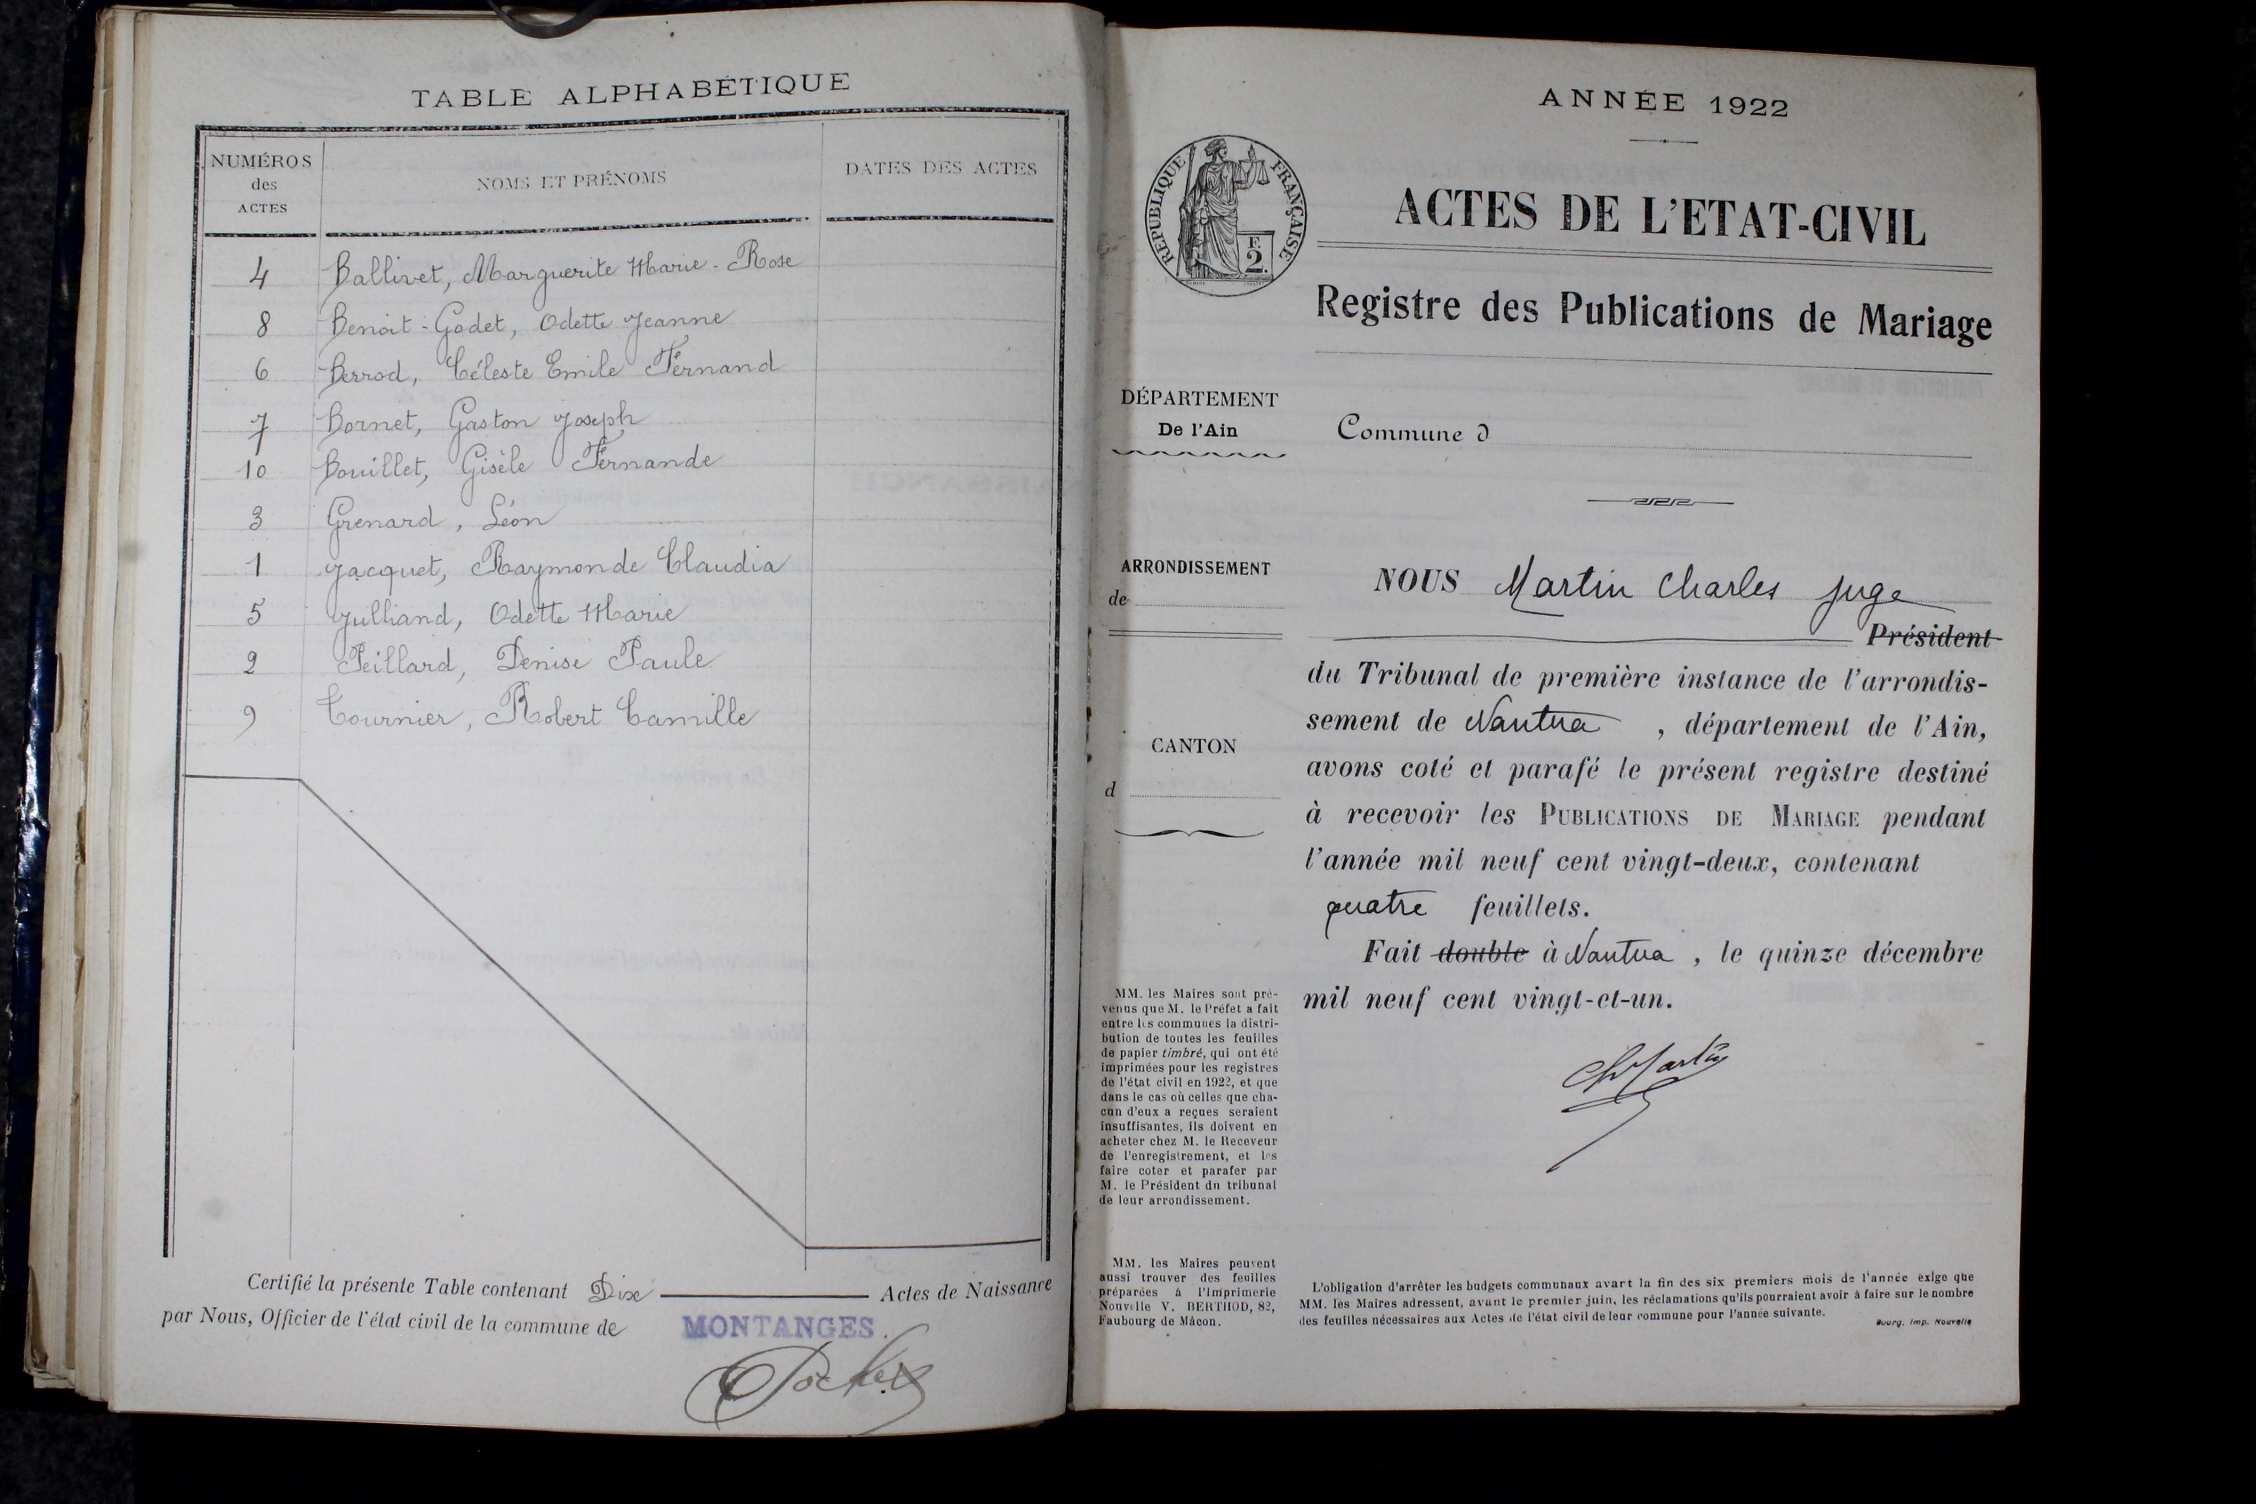 TABLE ALPHABÉTIQUE
NUMÉROS des ACTES
NOMS ET PRÉNOMS
DATES DES ACTES
4 Ballivet, Marguerite Marie-Rose
8 Benoit-Godet, Odette Jeanne
6 Berrod, Céleste Emile Fernand
7 Bornet, Gaston Joseph
10 Bouillet, Gisèle Fernande
3 Grenard, Léon
1 Jacquet, Raymonde Claudia
5 Julliand, Odette Marie
2 Peillard, Denise Paule
9 Tournier, Robert Camille
Certifié la présente Table contenant Dix Actes de Naissance
par Nous, Officier de l'état civil de la commune de MONTANGES
ANNÉE 1922
RÉPUBLIQUE FRANÇAISE
F.
2.
ACTES DE L'ETAT-CIVIL
Registre des Publications de Mariage
DÉPARTEMENT
De l'Ain
Commune d
ARRONDISSEMENT
de
CANTON
d
NOUS Martin Charles Juge
Président
du Tribunal de première instance de l'arrondis-
sement de Nantua, département de l'Ain,
avons coté et parafé le présent registre destiné
à recevoir les PUBLICATIONS DE MARIAGE pendant
l'année mil neuf cent vingt-deux, contenant
quatre feuillets.
Fait double à Nantua, le quinze décembre
mil neuf cent vingt-et-un.
Ch Martin
MM. les Maires sont pré-
venus que M. le Préfet a fait
entre les communes la distri-
bution de toutes les feuilles
de papier timbré, qui ont été
imprimées pour les registres
de l'état civil en 1922, et que
dans le cas où celles que cha-
cun d'eux a reçues seraient
insuffisantes, ils doivent en
acheter chez M. le Receveur
de l'enregistrement, et les
faire coter et parafer par
M. le Président du tribunal
de leur arrondissement.
MM. les Maires peuvent
aussi trouver des feuilles
préparées à l'Imprimerie
Nouvelle V. BERTHOD, 82,
Faubourg de Mâcon.
L'obligation d'arrêter les budgets communaux avart la fin des six premiers mois de l'année exige que
MM. les Maires adressent, avant le premier juin, les réclamations qu'ils pourraient avoir à faire sur le nombre
des feuilles nécessaires aux Actes de l'état civil de leur commune pour l'année suivante.
Bourg, Imp. Nouvelle